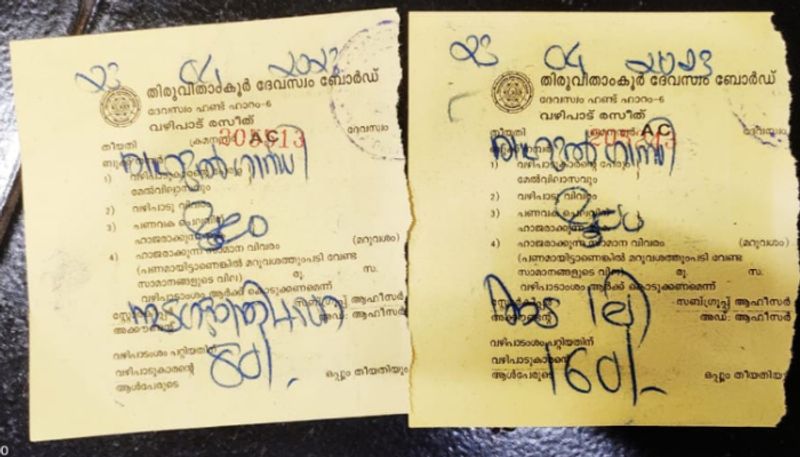 23 04 2023
തിരുവിതാംകൂർ ദേവസ്വം ബോർഡ്
ദേവസ്വം ഹണ്ട് ഫാറം-6
വഴിപാട് രസീത്
തീയതി ക്രമനമ്പർ A.C ദേവസ്വം
രാഹുൽഗാന്ധി
1) വഴിപാടുകാരന്റെ പേരും
മേൽവിലാസവും
2) വഴിപാടു വിവരം
3) പണവക ചെലവിന്
ഹാജരാക്കുന്ന
4) ഹാജരാക്കുന്ന സാമാന വിവരം (മറുവശം)
(പണമായിട്ടാണെങ്കിൽ മറുവശത്തുംപടി വേണ്ട
സാമാനങ്ങളുടെ വില) രൂ. സ.
വഴിപാടംശം ആർക്ക് കൊടുക്കണമെന്ന്
സബ്ഗ്രൂപ്പ് ആഫീസർ
അക്കൗണ്ടന്റ് അഡ: ആഫീസർ
വഴിപാടംശം പറ്റിയതിന്
വഴിപാടുകാരന്റെ 80/-
ആൾപേരുടെ ഒപ്പും തീയതിയും
23 04 2023
തിരുവിതാംകൂർ ദേവസ്വം ബോർഡ്
ദേവസ്വം ഹണ്ട് ഫാറം-6
വഴിപാട് രസീത്
തീയതി ക്രമനമ്പർ A.C ദേവസ്വം
രാഹുൽഗാന്ധി
1) വഴിപാടുകാരന്റെ പേരും
മേൽവിലാസവും
2) വഴിപാടു വിവരം
3) പണവക ചെലവിന്
ഹാജരാക്കുന്ന
4) ഹാജരാക്കുന്ന സാമാന വിവരം (മറുവശം)
(പണമായിട്ടാണെങ്കിൽ മറുവശത്തുംപടി വേണ്ട
സാമാനങ്ങളുടെ വില) രൂ. സ.
വഴിപാടംശം ആർക്ക് കൊടുക്കണമെന്ന്
സബ്ഗ്രൂപ്പ് ആഫീസർ
അക്കൗണ്ടന്റ് അഡ: ആഫീസർ
വഴിപാടംശം പറ്റിയതിന്
വഴിപാടുകാരന്റെ 160/-
ആൾപേരുടെ ഒപ്പും തീയതിയും